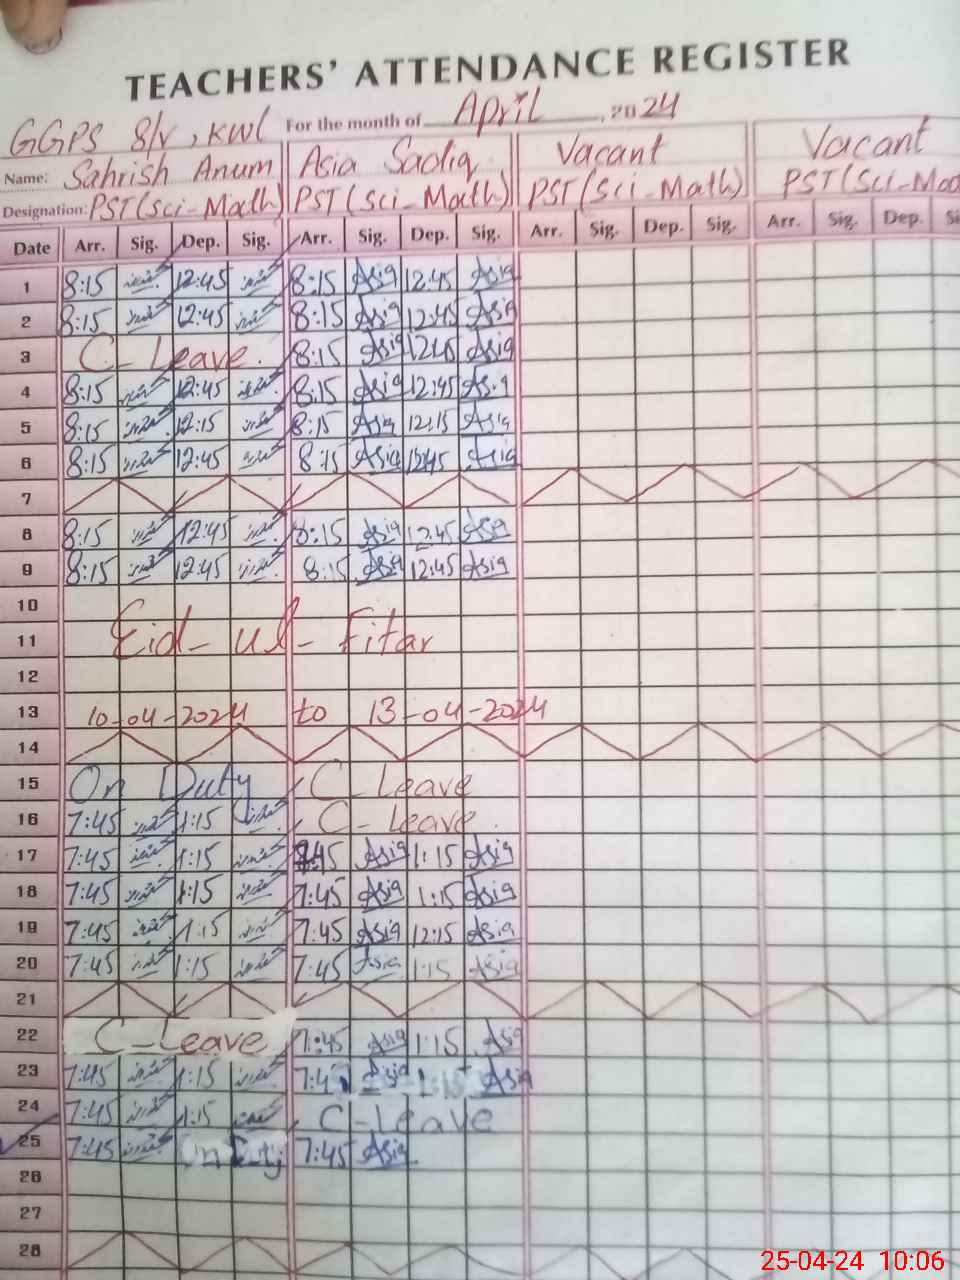 TEACHERS' ATTENDANCE REGISTER
GGPS 8/V, KWL For the month of April, 2024
Name: Sahrish Anum Asia Sadiq Vacant Vacant
Designation: PST(Sci-Math) PST(Sci-Math) PST(Sci-Math) PST(Sci-Mat
Date Arr. Sig. Dep. Sig. Arr. Sig. Dep. Sig. Arr. Sig. Dep. Sig. Arr. Sig. Dep. Si
1 8:15 12:45 8:15 Asia 12:45 Asia
2 8:15 12:45 8:15 Asia 12:45 Asia
3 C-Leave. 8:15 Asia 12:45 Asia
4 8:15 12:45 8:15 Asia 12:45 Asia
5 8:15 12:15 8:15 Asia 12:15 Asia
6 8:15 12:45 8:15 Asia 12:45 Asia
7
8 8:15 12:45 8:15 Asia 12:45 Asia
9 8:15 12:45 8:15 Asia 12:45 Asia
10
11 Eid-ul-Fitar
12
13 10-04-2024 to 13-04-2024
14
15 On Duty C Leave
16 7:45 1:15 C-Leave.
17 7:45 1:15 7:45 Asia 1:15 Asia
18 7:45 1:15 7:45 Asia 1:15 Asia
19 7:45 1:15 7:45 Asia 12:15 Asia
20 7:45 1:15 7:45 Asia 1:15 Asia
21
22 C-Leave 7:45 Asia 1:15 Asia
23 7:45 1:15 7:45 Asia 1:15 Asia
24 7:45 1:15 C-Leave
25 7:45 On Duty 7:45 Asia
26
27
28
25-04-24 10:06